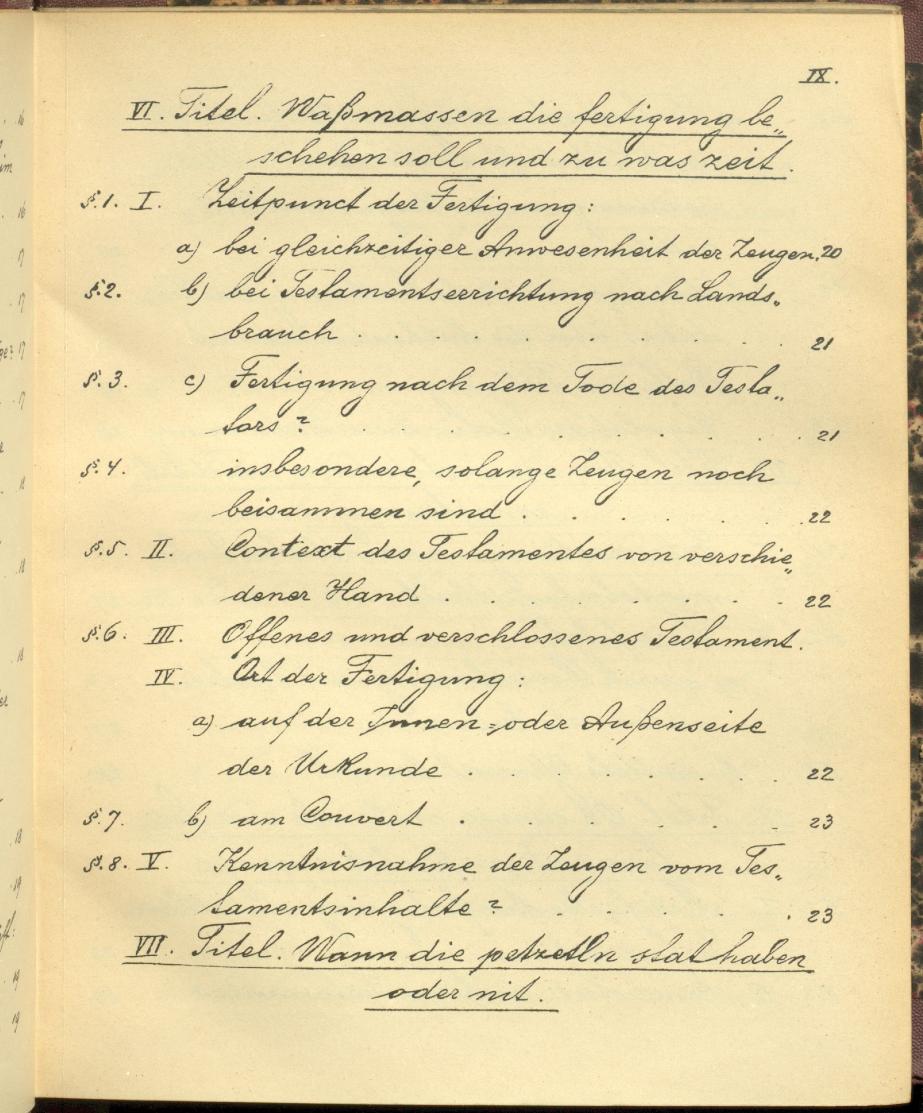 IX.
VI. Titel. Waßmassen die fertigung be„
schehen soll und zu was zeit.
§.1. I. Zeitpunct der Fertigung:
a) bei gleichzeitiger Anwesenheit der Zeugen. 20
§.2. b) bei Testamentserrichtung nach Lands„
brauch . . . . . 21
§.3. c) Fertigung nach dem Tode des Testa„
tors? . . . . . . . . 21
§.4. insbesondere, solange Zeugen noch
beisammen sind . . . . . . 22
§.5. II. Context des Testamentes von verschie„
dener Hand . . . . . . . 22
§.6. III. Offenes und verschlossenes Testament.
IV. Ort der Fertigung:
a) auf der Innen- oder Außenseite
der Urkunde . . . . . . 22
§.7. b) am Couvert . . . . . . 23
§.8. V. Kenntnisnahme der Zeugen vom Tes„
tamentsinhalte? . . . . . 23
VII. Titel. Wann die petzetln stat haben
oder nit.